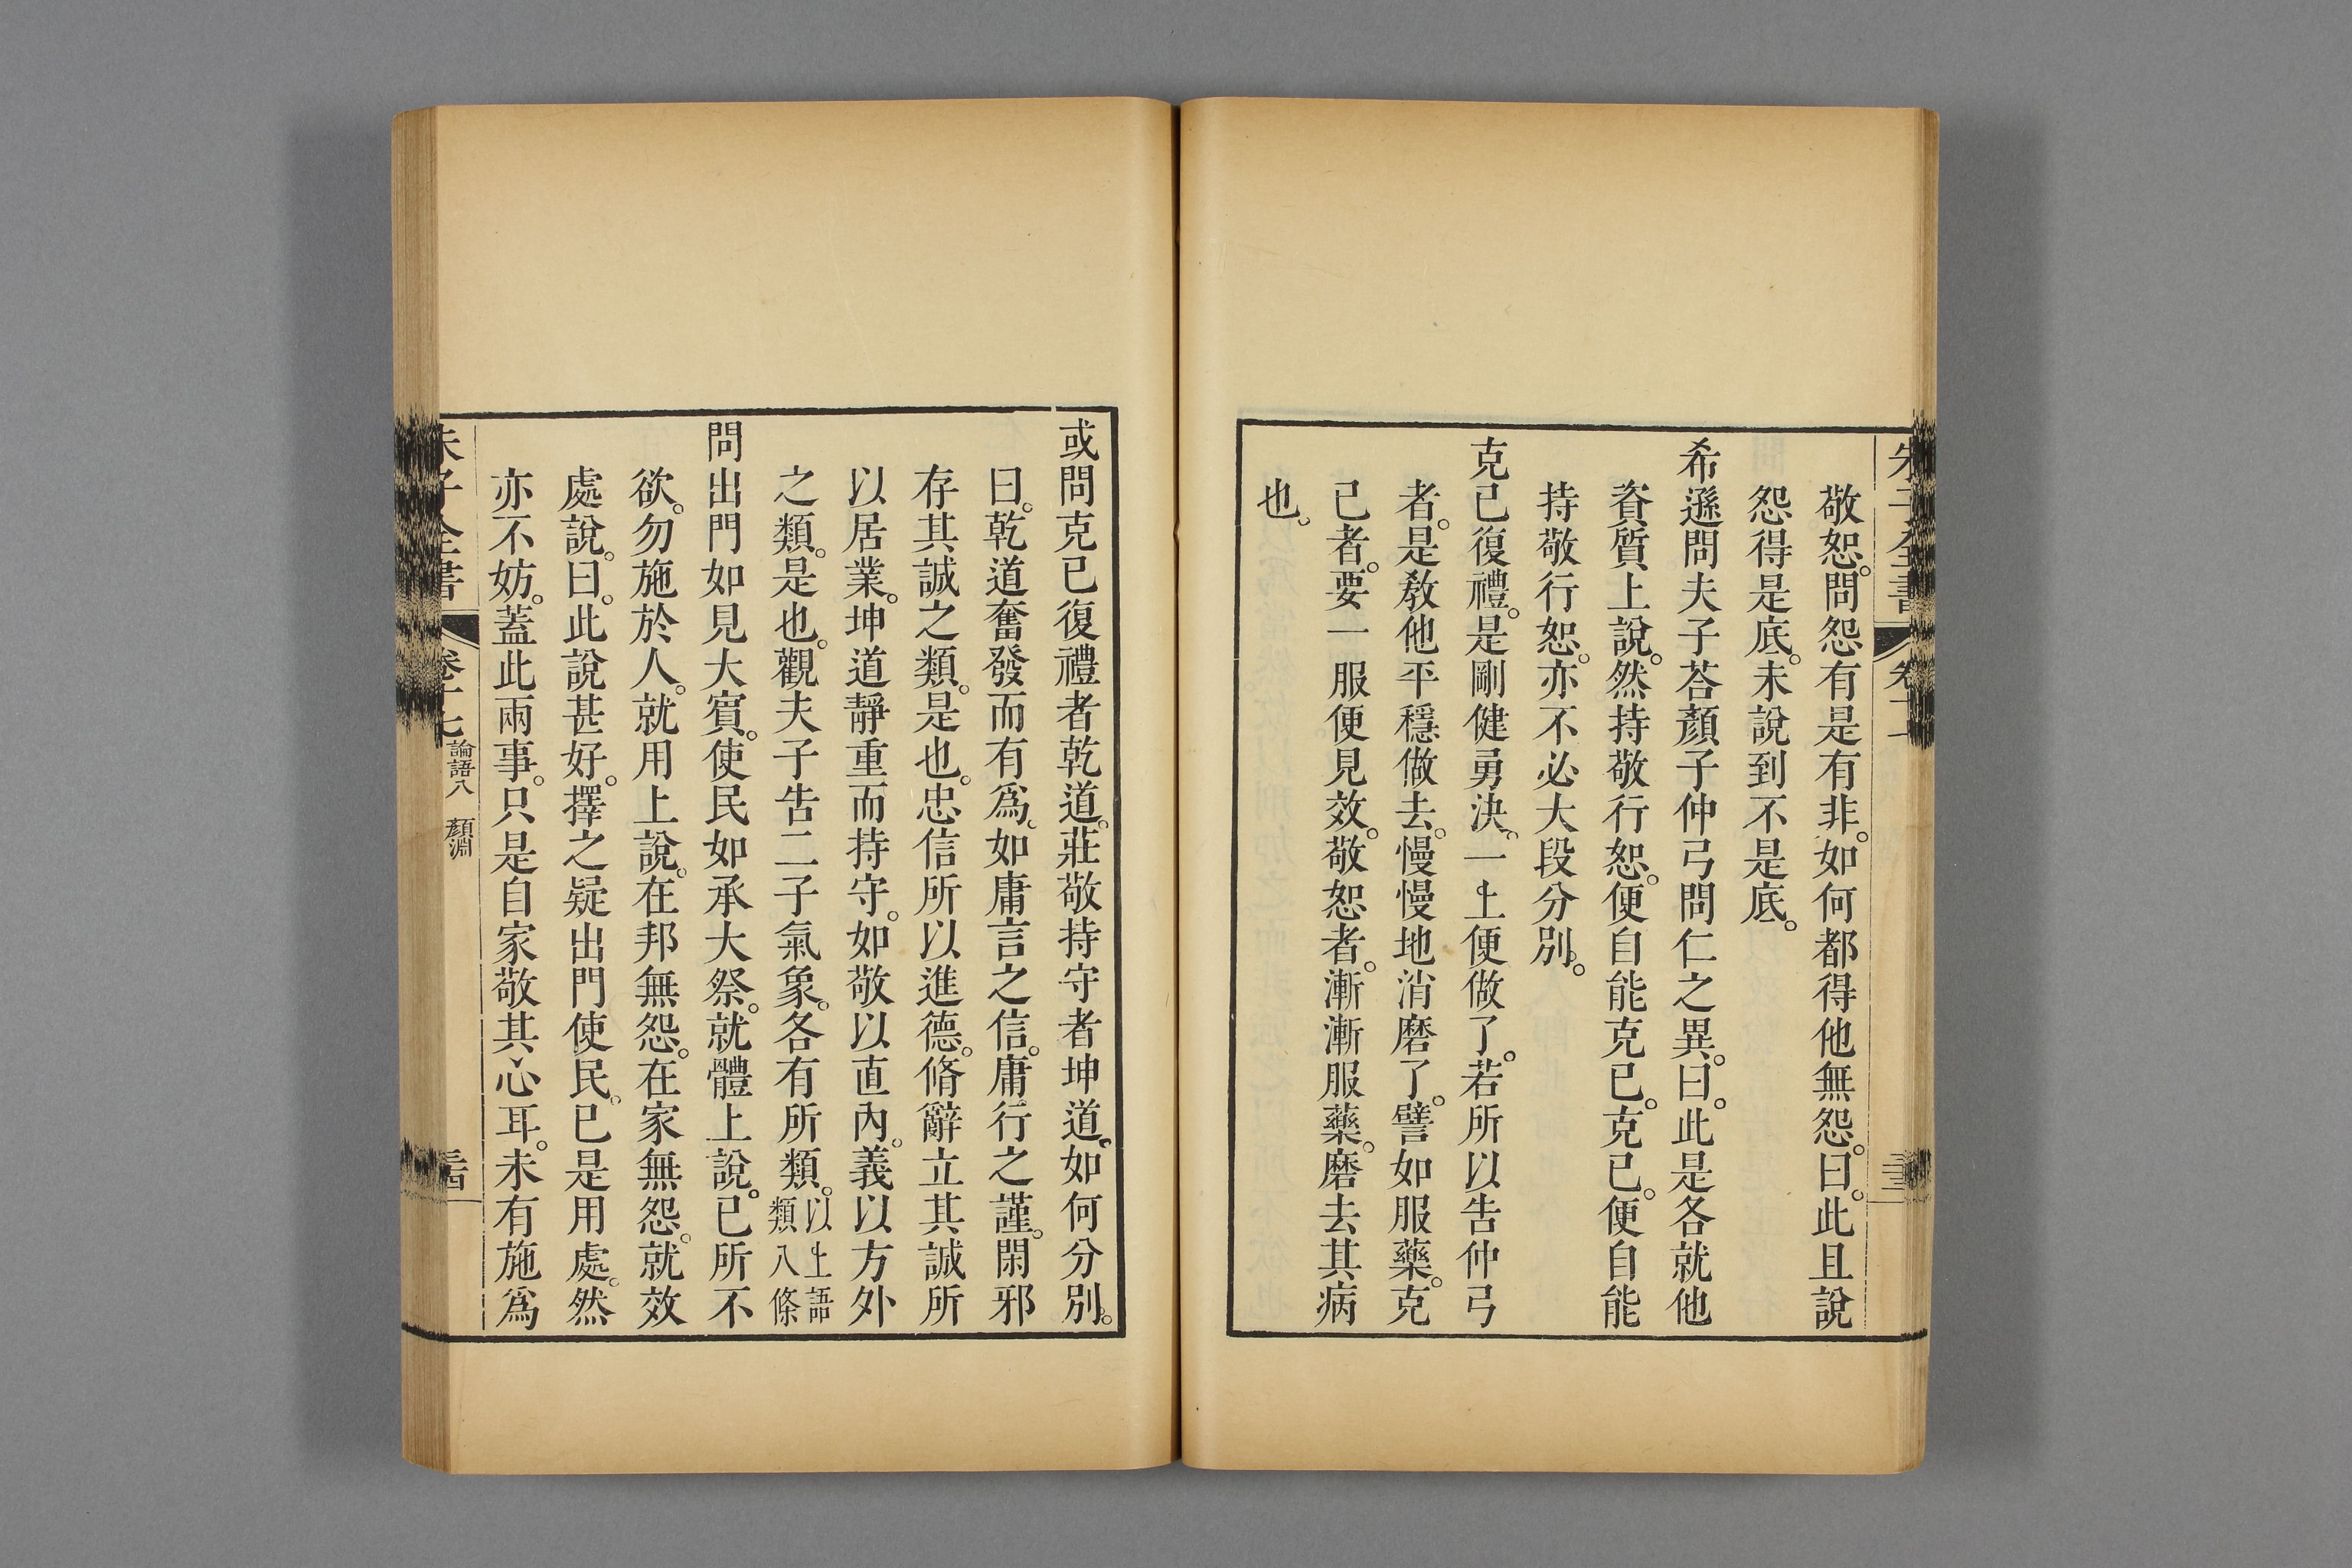 敬恕。問怨有是有非。如何都得他無怨。曰。此且說
怨得是底。未說到不是底。
希遜問夫子荅顏子仲弓問仁之異。曰。此是各就他
資質上說。然持敬行恕。便自能克己。克己。便自能
持敬行恕。亦不必大段分別。
克己復禮。是剛健勇決。一上便做了。若所以告仲弓
者。是教他平穩做去。慢慢地消磨了。譬如服藥。克
己者。要一服便見效。敬恕者。漸漸服藥。磨去其病
也。
或問克己復禮者乾道。莊敬持守者坤道。如何分別。
曰。乾道奮發而有爲。如庸言之信。庸行之謹。閑邪
存其誠之類。是也。忠信所以進德。脩辭立其誠所
以居業。坤道靜重而持守。如敬以直內。義以方外
之類。是也。觀夫子告二子氣象。各有所類。以上語
類八條
問出門如見大賓。使民如承大祭。就體上說。已所不
欲。勿施於人。就用上說。在邦無怨。在家無怨。就效
處說。曰。此說甚好。擇之疑出門使民。已是用處。然
亦不妨。蓋此兩事。只是自家敬其心耳。未有施爲
朱子全書
卷十七
論語八 顏淵